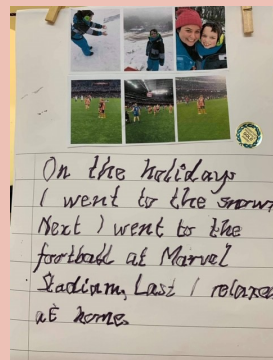 On the holidays
I went to the snow
Next I went to the
football at Marvel
Stadium, Last I relaxed
at home.